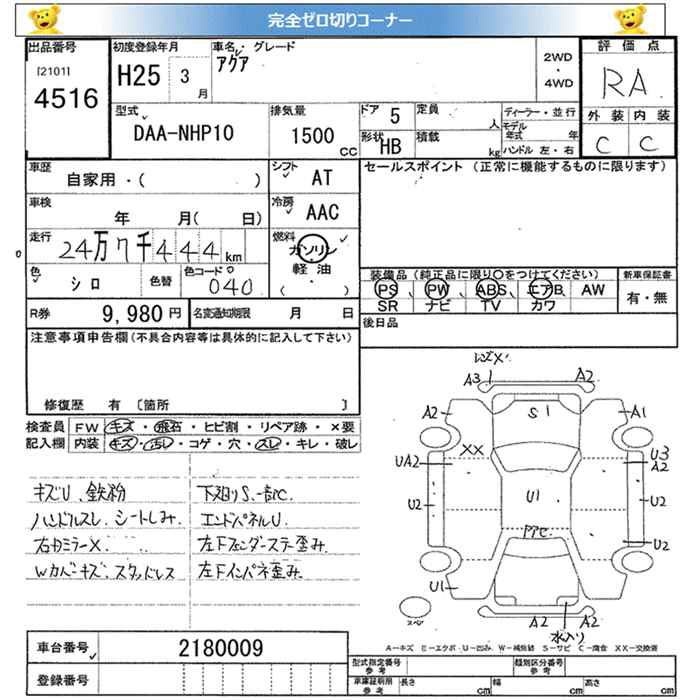 完全ゼロ切りコーナー
出品番号 初度登録年月 車名・グレード 評価点
[2101] 4516 H25 3 月 アクア 2WD・4WD RA
外装 内装
C C
型式 排気量 ドア 5 定員 人 ディーラー・並行
DAA-NHP10 1500 CC 形状 HB 積載 kg モデル年式 年
ハンドル 左・右
車歴 シフト セールスポイント (正常に機能するものに限ります)
自家用・( ) AT
車検 冷房
年 月( 日) AAC
走行 燃料
24万7千444km ガソリン・軽油 ( ・ )
色 シロ 色替 色コード 040
装備品(純正品に限り○をつけてください) 新車保証書
PS、PW、ABS、エアB、AW 有・無
SR ナビ TV カワ
R券 9,980円 名変通知期限 月 日
後日品
注意事項申告欄(不具合内容等は具体的に記入して下さい)
修復歴 有 〔箇所 〕
検査員 FW キズ・飛石・ヒビ割・リペア跡・×要
記入欄 内装 キズ・汚レ・コゲ・穴・スレ・キレ・破レ
キズU、鉄粉 下廻りS、一部C
ハンドルスレ、シートしみ、 エンドパネルU
右カミラーX、 左Fフェンダーステー歪み
Wカバキズ、スタッドレス 左Fインパネ歪み
レンズX
A3 1 A2
A2 S1 A1
XX
UA2 U3 A2
U2 U1 U2
U2
U1
A2 A2
スペア 水入り
A-キズ E-エクボ U-凹み W-補修跡 S-サビ C-腐食 XX-交換済
車台番号 2180009
登録番号
型式指定番号 参考 類別区分番号 参考
車庫証明用 参考 長さ cm 幅 cm 高さ cm